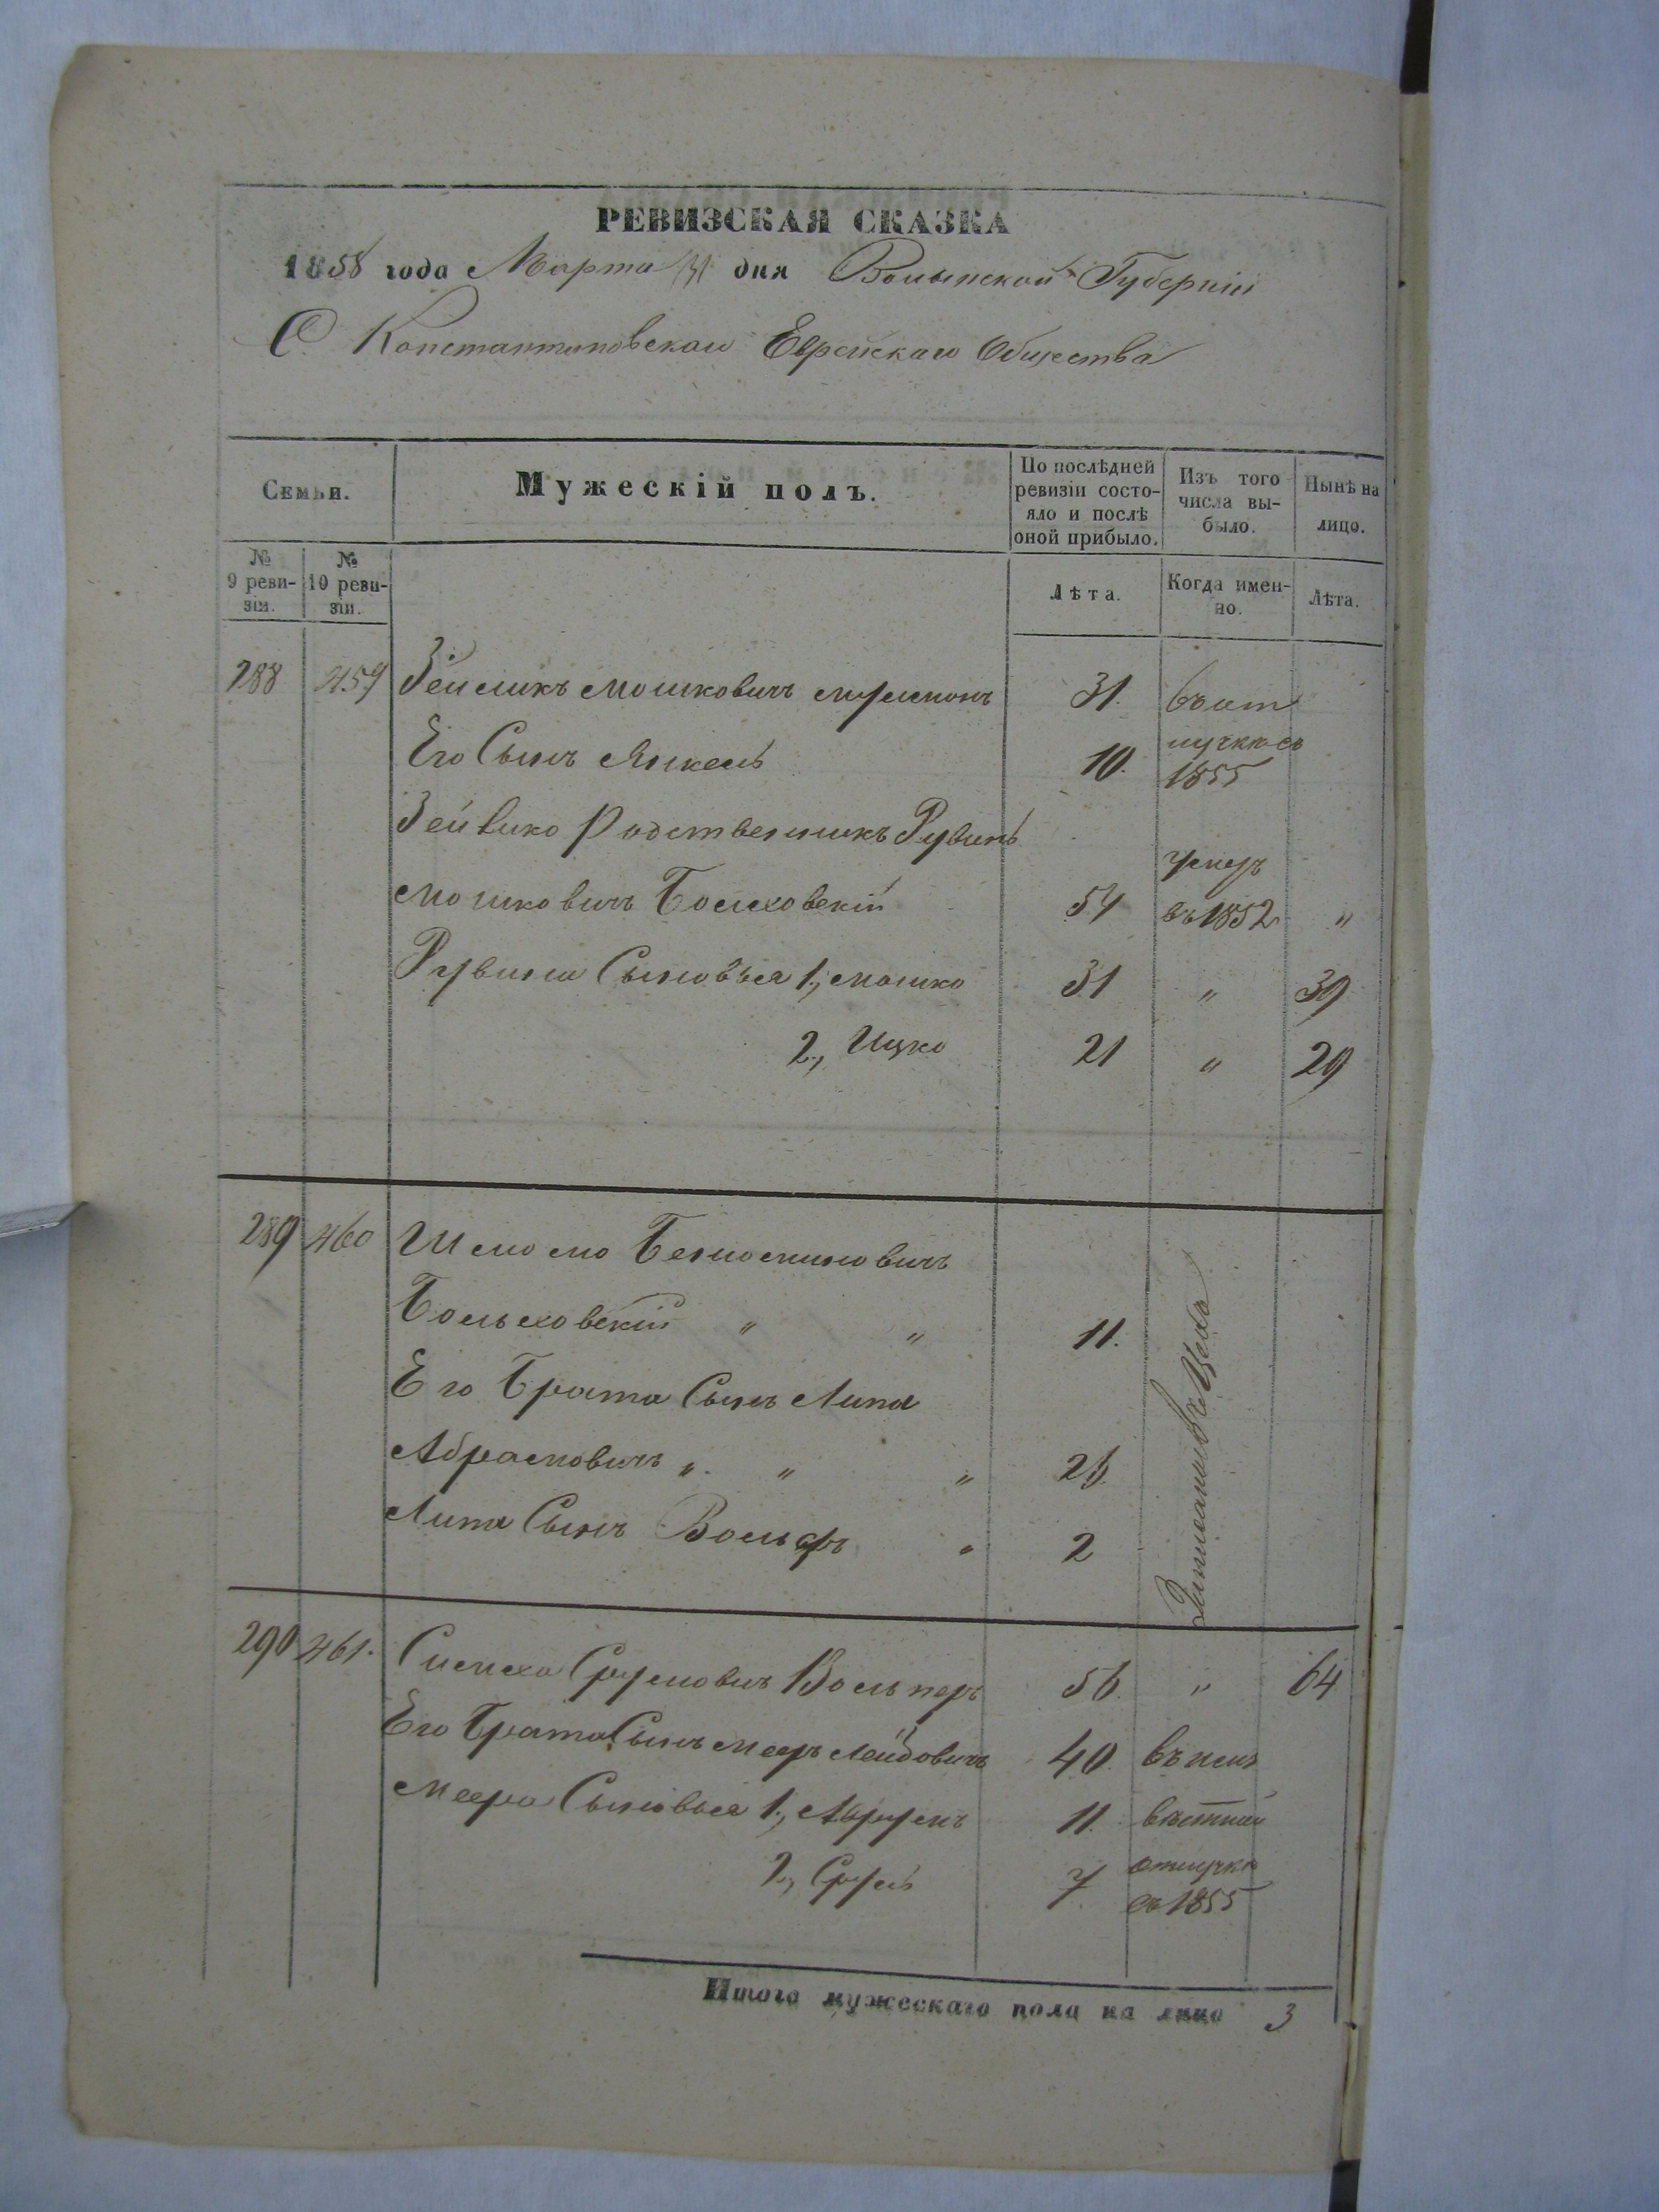 РЕВИЗСКАЯ СКАЗКА
1858 года Марта 31 дня Волынской Губерніи
С. Константиновскаго Еврейскаго Общества
Семьи.
Мужескій полъ.
По послѣдней ревизіи состо-
яло и послѣ
оной прибыло.
Изъ того
числа вы-
было.
Нынѣ на
лицо.
№
9 реви-
зіи.
№
10 реви-
зіи.
Лѣта.
Когда имен-
но.
Лѣта.
288 459 Зейликъ Мошковичъ 31. въ от
Его Сынъ Янкель 10. лучкѣ съ
1855
Родственникъ Рувинъ
умеръ
Мошковичъ Болеховскій 54 въ 1852 "
Рувина Сыновья 1., Мошко 31 " 39
2., Ицко 21 " 29
289 460 Шлиомо Беньоминовичъ
Больховскій " " 11.
Его Брата Сынъ Липа
Абрамовичъ " " " 25.
Липа Сынъ Вольфъ " 2
290 461. Симха Срулевичъ Вольперъ 56. " 64
Его Брата Сынъ Мееръ Лейбовичъ 40. въ неиз
Меера Сыновья 1., 11. вѣстной
2., Сруль 7. отлучкѣ
съ 1855
Итого мужескаго пола на лицо 3